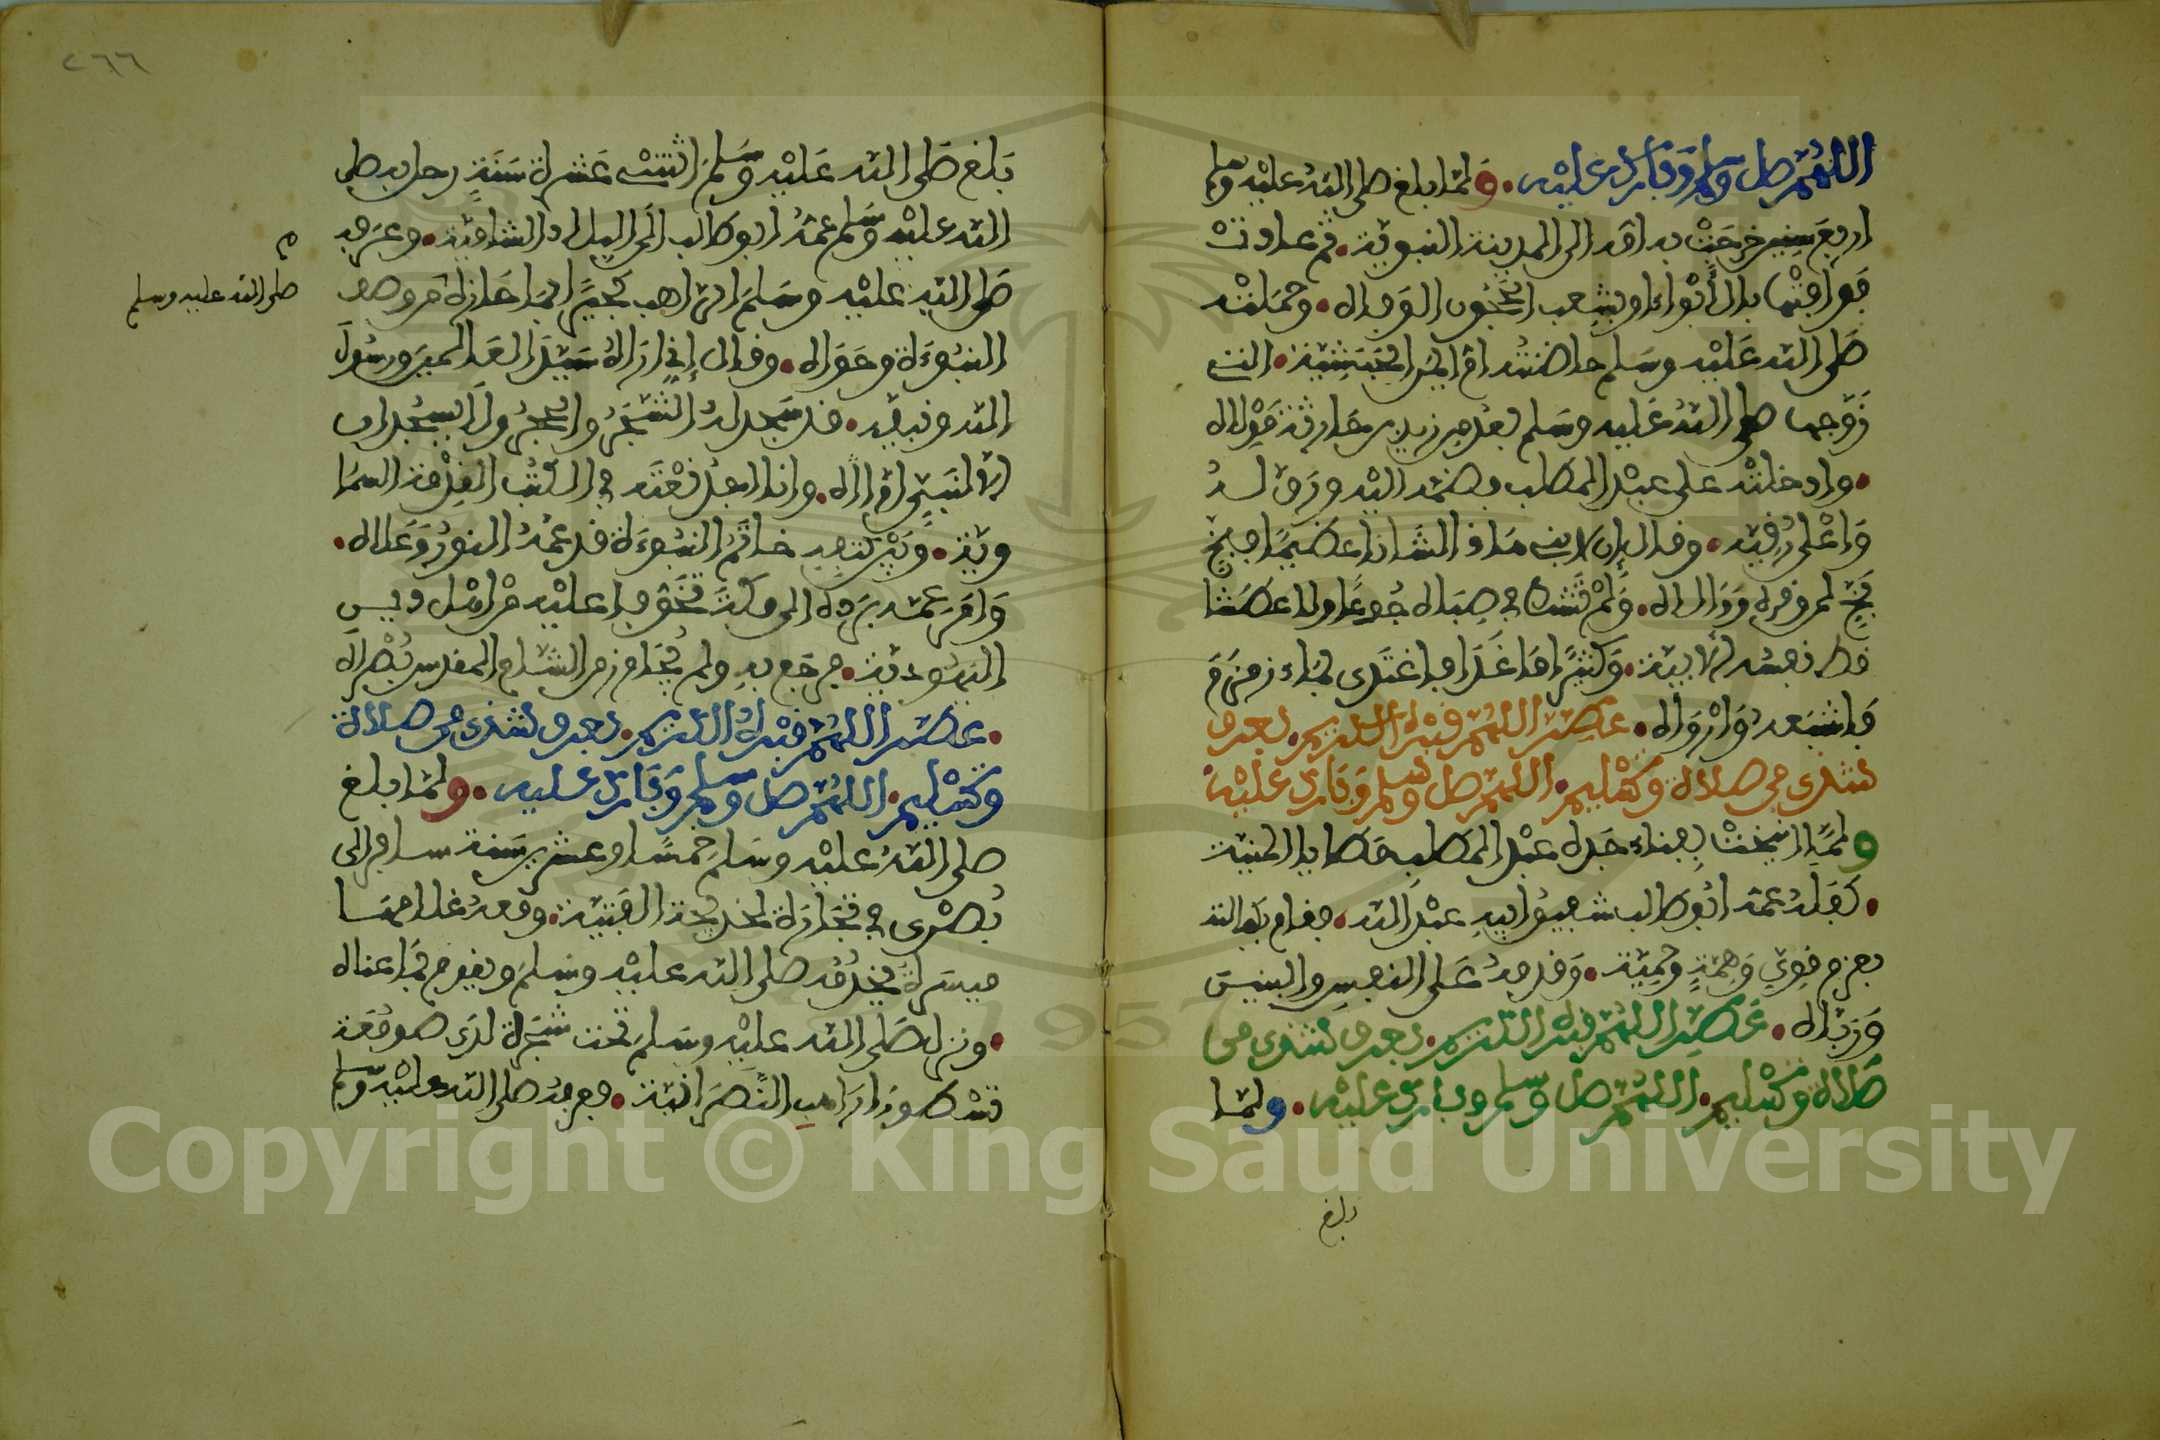 اللهم صل وسلم وبارك عليه. ولما بلغ صلى الله عليه وسلم
اربع سنين خرجت به امه الى المدينة النبوية. ثم عادت
فوافتها بالأبواء او بشعب الحجون الوفاه. وحملته
صلى الله عليه وسلم حاضنته ام ايمن الحبشية. التي
زوجها صلى الله عليه وسلم بعد من زيد بن حارثة مولاه
. وادخلته على عبد المطلب فضمه اليه ورق له
واعلى رقيه. وقال إن لابني هذا لشانا عظيما فبخ
بخ لمن وقره ووالاه. ولم تشك في صباه جوعا ولا عطشا
قط نفسه الابية. وكثيرا ما غدا فاغتدى بماء زمزم
فاشبعه وارواه. عطر اللهم قبره الكريم. بعرف
شذي من صلاة وتسليم. اللهم صل وسلم وبارك عليه.
ولما انيخت بفناء جده عبد المطلب مطايا المنية
. كفله عمه ابو طالب شقيق ابيه عبد الله. فقام بكفالته
بعزم قوي وهمة وحمية. وقدمه على النفس والبنين
ورباه. عطر اللهم قبره الكريم. بعرف شذي من
صلاة وتسليم. اللهم صل وسلم وبارك عليه. ولما
بلغ
٢٦٦
بلغ صلى الله عليه وسلم اثنتي عشرة سنة رحل به صلى
الله عليه وسلم عمه ابو طالب الى البلاد الشامية. وعرفه
صلى الله عليه وسلم الراهب بحيرا بما حازه من وصف
النبوءة وحواه. وقال إني اراه سيد العالمين ورسول
الله ونبيه. قد سجد له الشجر والحجر ولا يسجدان
الا لنبي اواه. وانا لنجد نعته في الكتب القديمة السما
وية. وبين كتفيه خاتم النبوءة قد عمه النور وعلاه.
وامر عمه برده الى مكة تخوفا عليه من اهل دين
اليهودية. فرجع به ولم يجاوز من الشام المقدس بصراه
. عطر اللهم قبره الكريم. بعرف شذي من صلاة
وتسليم. اللهم صل وسلم وبارك عليه. ولما بلغ
صلى الله عليه وسلم خمسا وعشرين سنة سافر الى
بصرى في تجارة لخديجة الفتية. ومعه غلامها
ميسرة يخدمه صلى الله عليه وسلم ويقوم بما عناه
. ونزل صلى الله عليه وسلم تحت شجرة لدى صومعة
نسطورا راهب النصرانية. فعرفه صلى الله عليه وسلم
م
صلى الله عليه وسلم
Copyright © King Saud University
1957